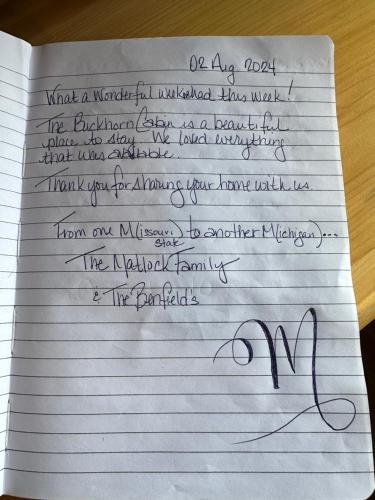 02 Aug 2024
What a Wonderful week had this week!
The Buckhorn Cabin is a beautiful
place to stay. We loved everything
that was available.
Thank you for sharing your home with us.
From one M(issouri) to another M(ichigan)...
state
The Matlock Family
& The Benfield's
M